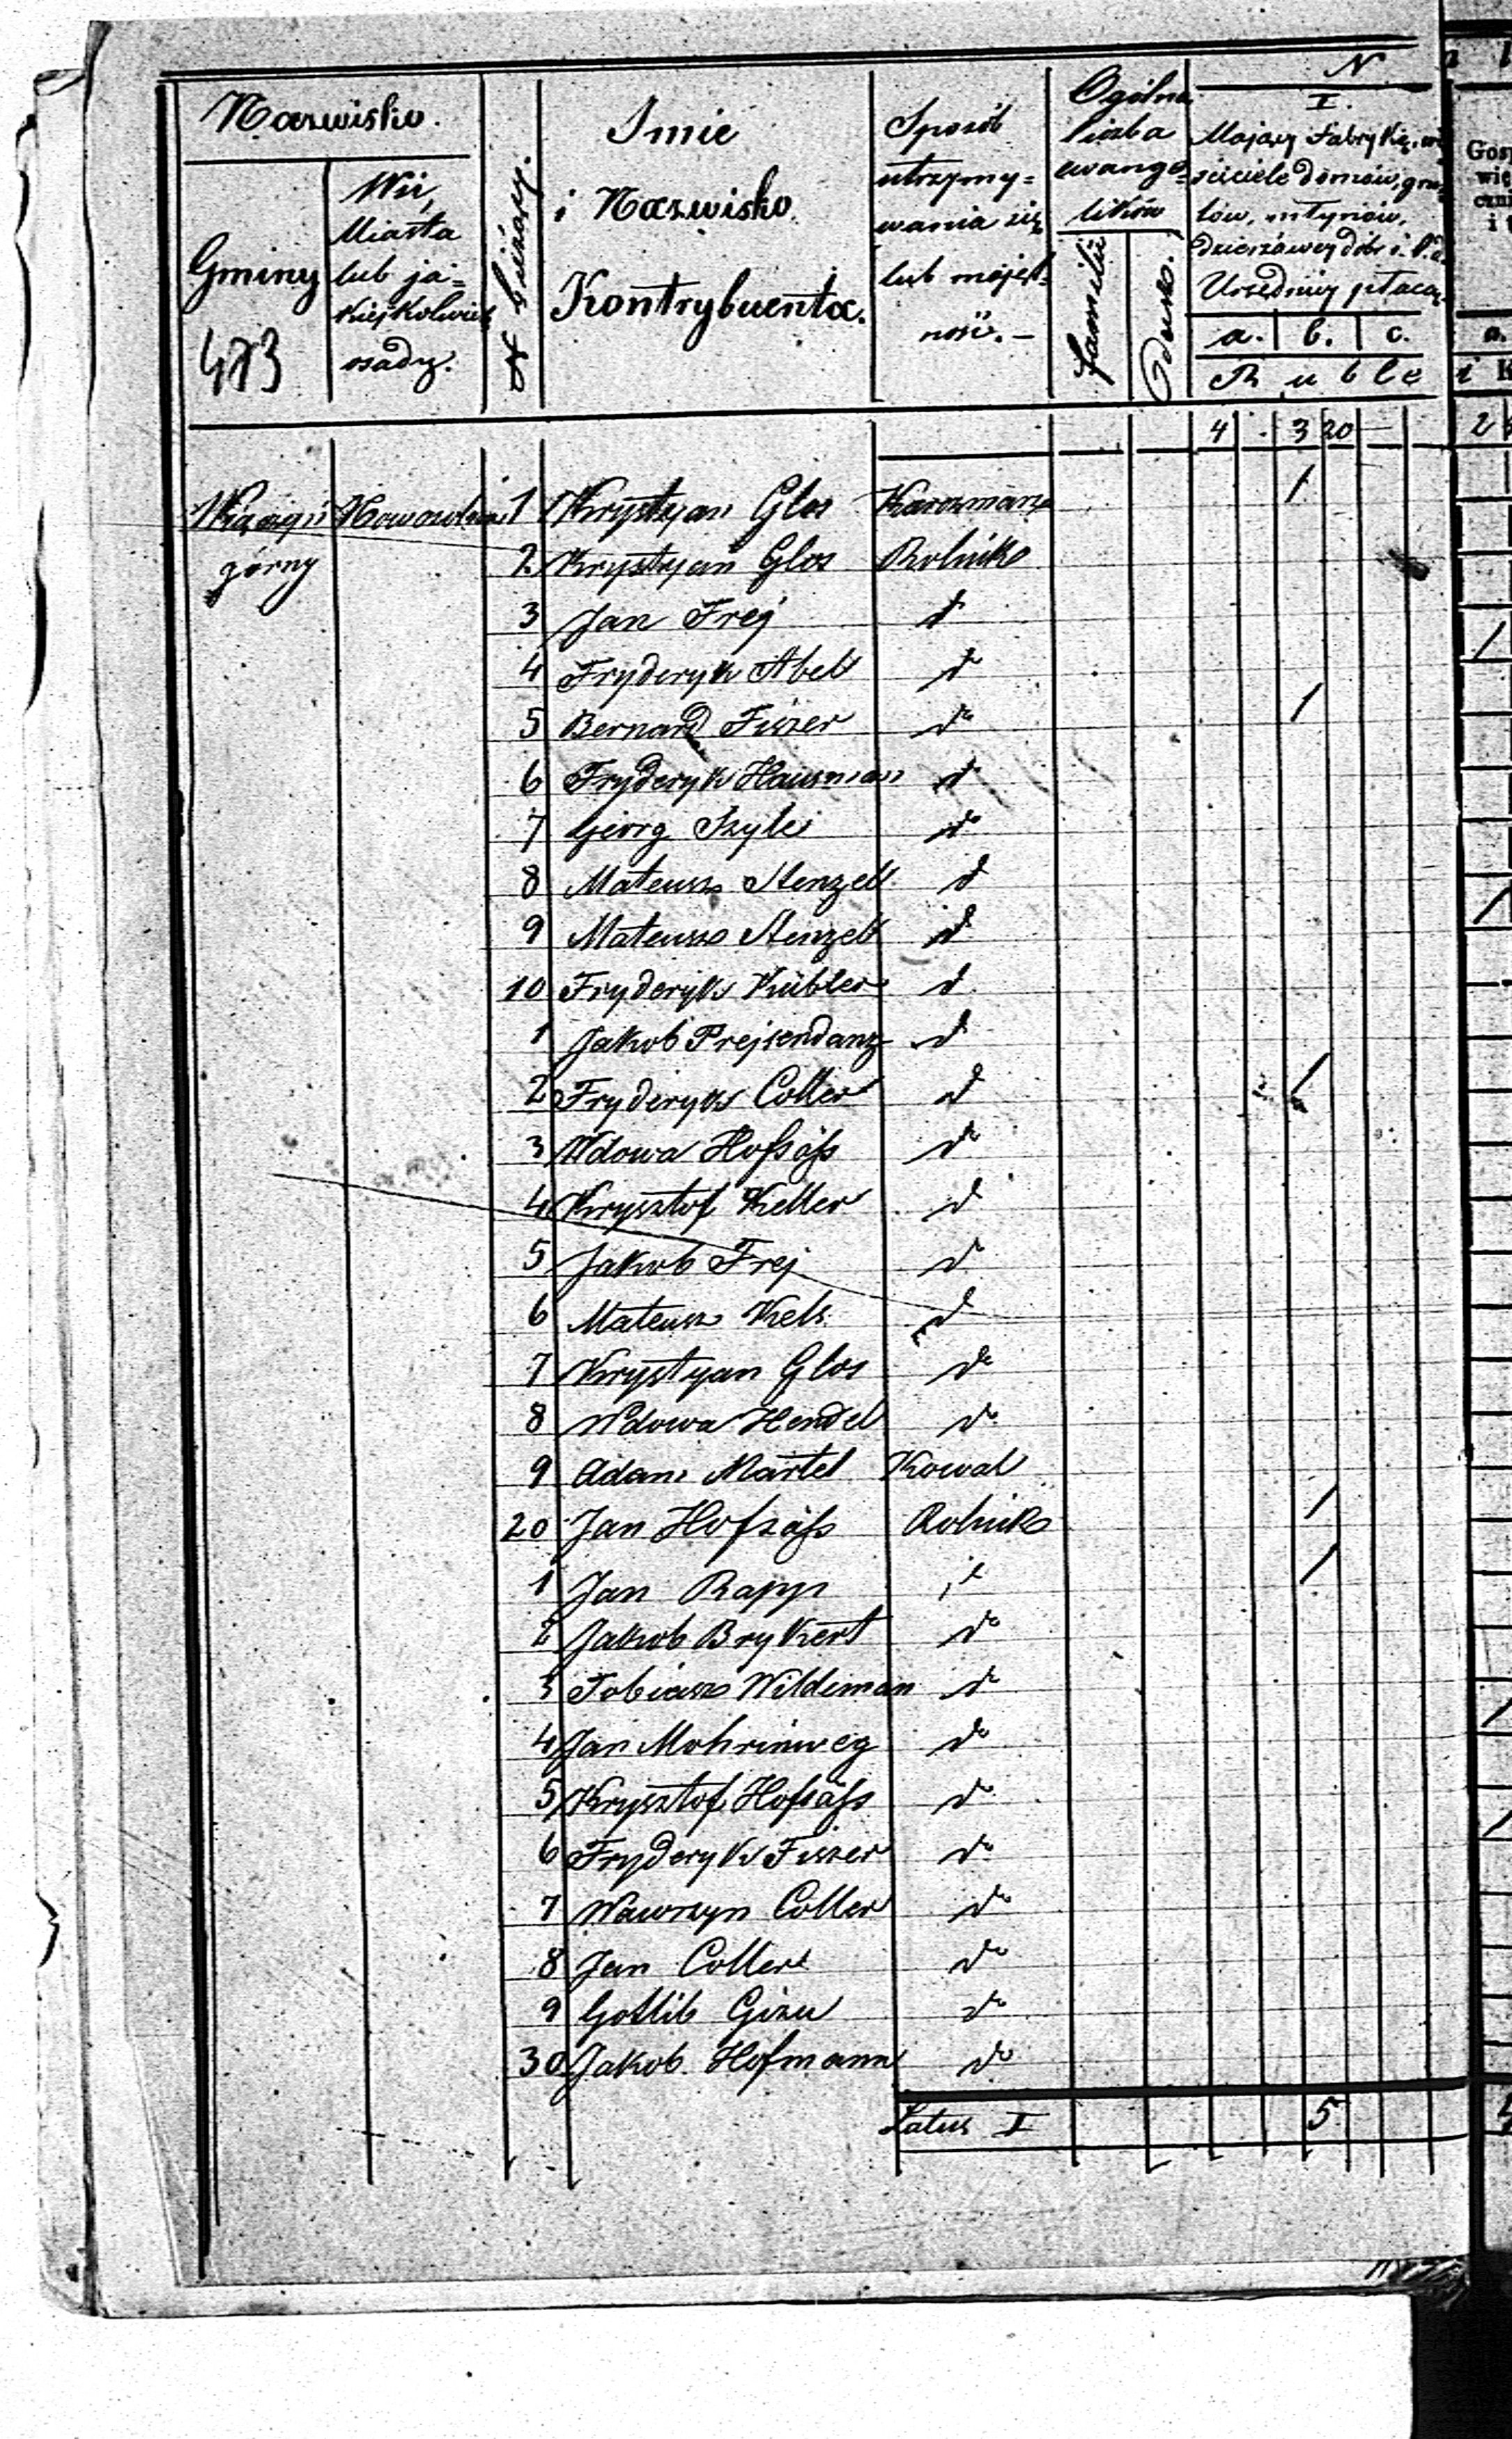 Nazwisko.
Gminy
473
Wsi,
Miasta
lub ja=
kiejkolwiek
osady.
N bieżący.
Imie
i Nazwisko
Kontrybuenta.
Sposób
utrzymy=
wania się
lub mająt=
ność.—
Ogólna
liczba
ewange=
lików
Familii
Osób
N
I.
Mający Fabrykę, wł
ściciele domów, grun
tów, młynów,
dzierżawcy dóbr i. t. d.
Urzędnicy płacą
a. b. c.
Ruble
i K
Gosp
wie
czni
i t
a.
4 . 3 20 —
2
górny
1 Krystyan Glos Karczmarz /
2 Krystyan Glos Rolnik
3 Jan Frej d
4 Fryderyk Abel do
5 Bernard Fiszer do /
6 Fryderyk Hausman d
7 Georg Szyle do
8 Mateusz Stenzel d
9 Mateusz Stenzel d
10 Fryderyk Kübler d
1 Jakob Prejzendanz d
2 Fryderyk Coller d /
3 Wdowa Hofsäss do
4 Krysztof Keller d
5 Jakob Frej do
6 Mateusz Kels d
7 Krystyan Glos do
8 Wdowa Hendel do
9 Adam Martel Kowal
20 Jan Hofsäss Rolnik /
1 Jan Rapp d /
2 Jakob Brykert do
3 Tobiasz Wildeman do
4 Jan Mohrinweg do
5 Krysztof Hofsäss do
6 Fryderyk Fiszer do
7 Wawrzyn Coller do
8 Jan Coller do
9 Gotlib do
30 Jakob Hofmann do
Latus I 5